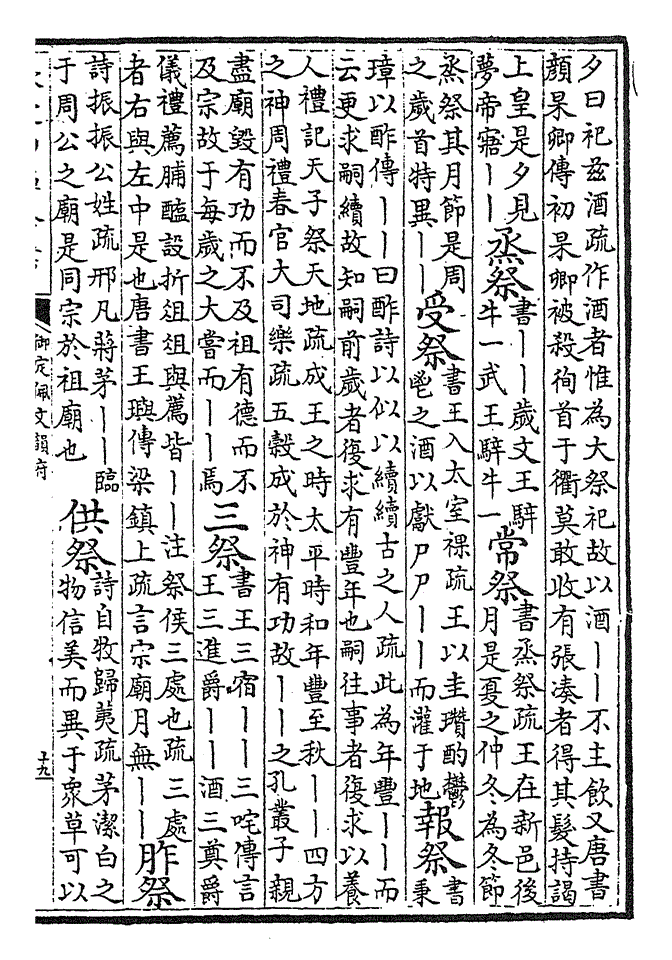 夕曰祀茲酒疏作酒者惟為大祭祀故以酒丨丨不主飲又唐書
顏杲卿傳初杲卿被殺徇首于衢莫敢收有張湊者得其髮持謁
上皇是夕見
夢帝寤丨丨
烝祭
書丨丨歲文王騂
牛一武王騂牛一
常祭
書烝祭疏王在新邑後
月是夏之仲冬為冬節
烝祭其月節是周
之歲首特異丨丨
受祭
書王入太室祼疏王以圭瓚酌鬱
鬯之酒以獻尸尸丨丨而灌于地
報祭
書
秉
璋以酢傳丨丨曰酢詩以似以續續古之人疏此為年豐丨丨而
云更求嗣續故知嗣前歲者復求有豐年也嗣往事者復求以養
人禮記天子祭天地疏成王之時太平時和年豐至秋丨丨四方
之神周禮春官大司樂疏五穀成於神有功故丨丨之孔叢子親
盡廟毀有功而不及祖有德而不
及宗故于每歲之大嘗而丨丨焉
三祭
書王三宿丨丨三咤傳言
王三進爵丨丨酒三奠爵
儀禮薦脯醢設折俎俎與薦皆丨丨注祭侯三處也疏三處
者右與左中是也唐書王璵傳梁鎮上疏言宗廟月無丨丨
胙祭
詩振振公姓疏邢凡蔣茅丨丨臨
于周公之廟是同宗於祖廟也
供祭
詩自牧歸荑疏茅潔白之
物信美而異于衆草可以
御定佩文韻府
十九